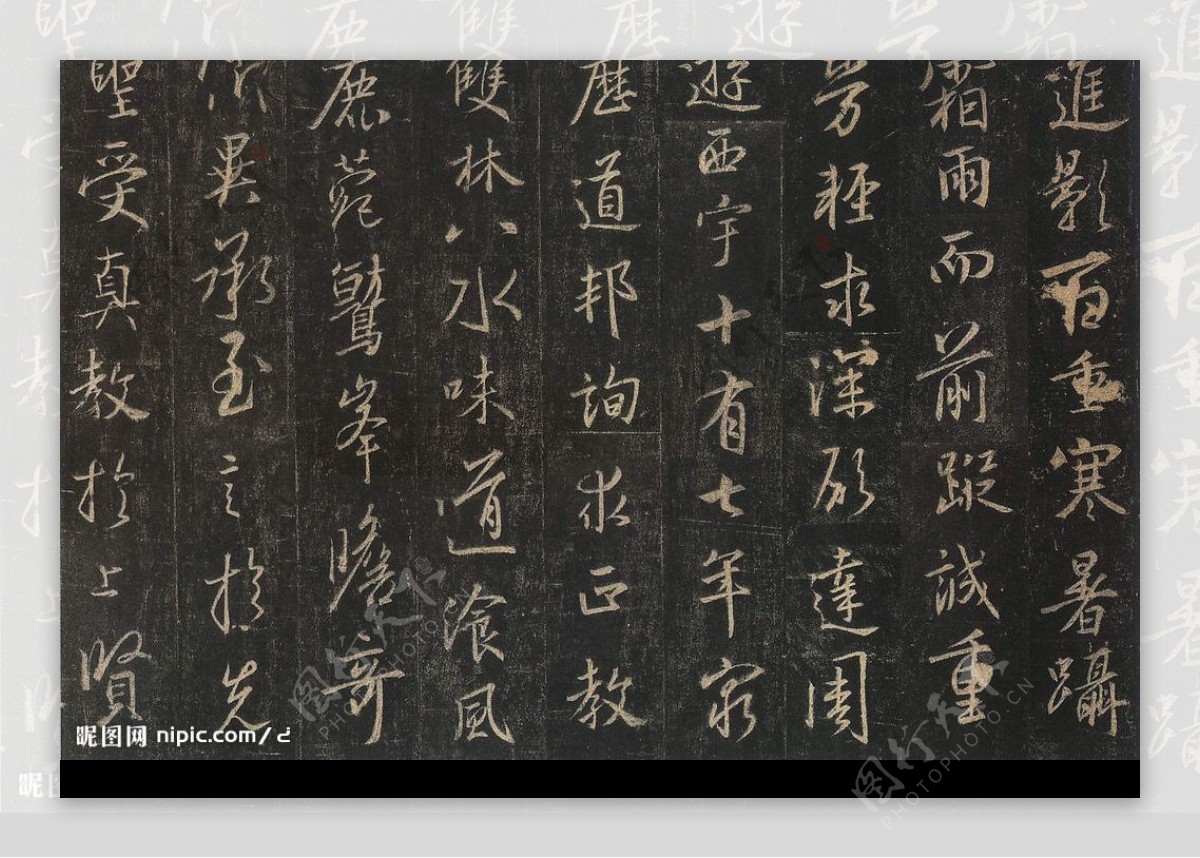 進影百重寒暑躡
霜雨而前蹤誠重
勞輕求深願達周
遊西宇十有七年窮
歷道邦詢求正教
雙林八水味道飡風
鹿菀鷲峯瞻奇
仰異承至言於先
聖受真教於上賢
昵图网 nipic.com/
图行天下 PHOTOPHOTO.CN
图行天下 PHOTOPHOTO.CN